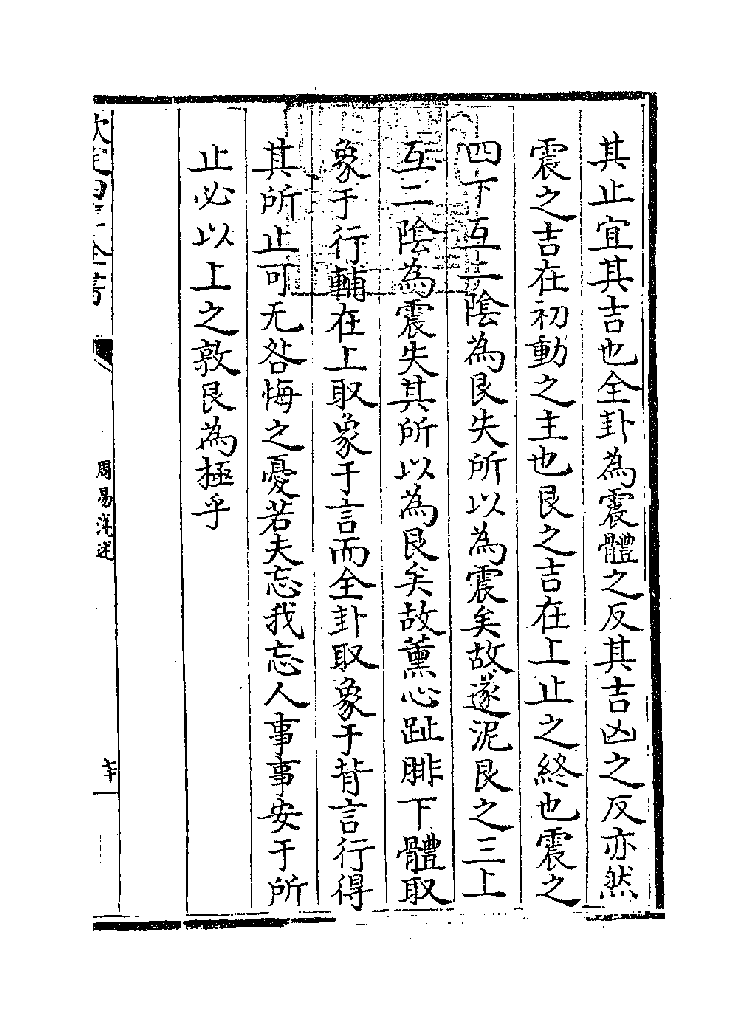 其止宜其吉也全卦為震體之反其吉凶之反亦然
震之吉在初動之主也艮之吉在上止之終也震之
四下互二陰為艮失所以為震矣故遂泥艮之三上
互二陰為震失其所以為艮矣故薰心趾腓下體取
象于行輔在上取象于言而全卦取象于背言行得
其所止可无咎悔之憂若夫忘我忘人事事安于所
止必以上之敦艮為極乎
欽定四庫全書
周易洗述